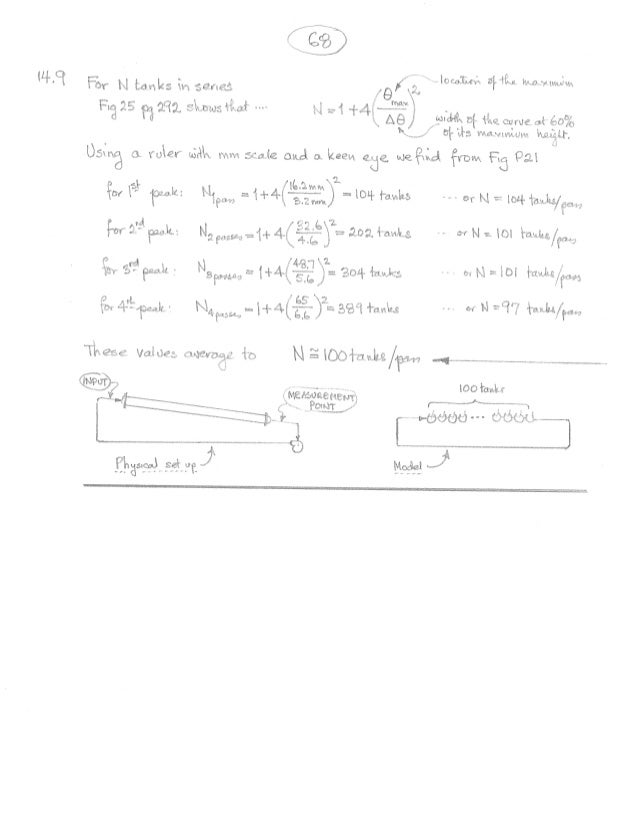 68
14.9 For N tanks in series
Fig 25 pg 292 shows that .... N = 1 + 4 (θmax / Δθ)²
location of the maximum
width of the curve at 60% of its maximum height.
Using a ruler with mm scale and a keen eye we find from Fig P21
for 1st peak: N1pass = 1 + 4 (16.2 mm / 3.2 mm)² = 104 tanks ... or N = 104 tanks/pass
for 2nd peak: N2 passes = 1 + 4 (32.6 / 4.6)² = 202 tanks ... or N = 101 tanks/pass
for 3rd peak: N3 passes = 1 + 4 (48.7 / 5.6)² = 304 tanks ... or N = 101 tanks/pass
for 4th peak: N4 passes = 1 + 4 (65 / 6.6)² = 389 tanks ... or N = 97 tanks/pass
These values average to N ≅ 100 tanks/pass
INPUT
MEASUREMENT
POINT
100 tanks
Physical set up
Model